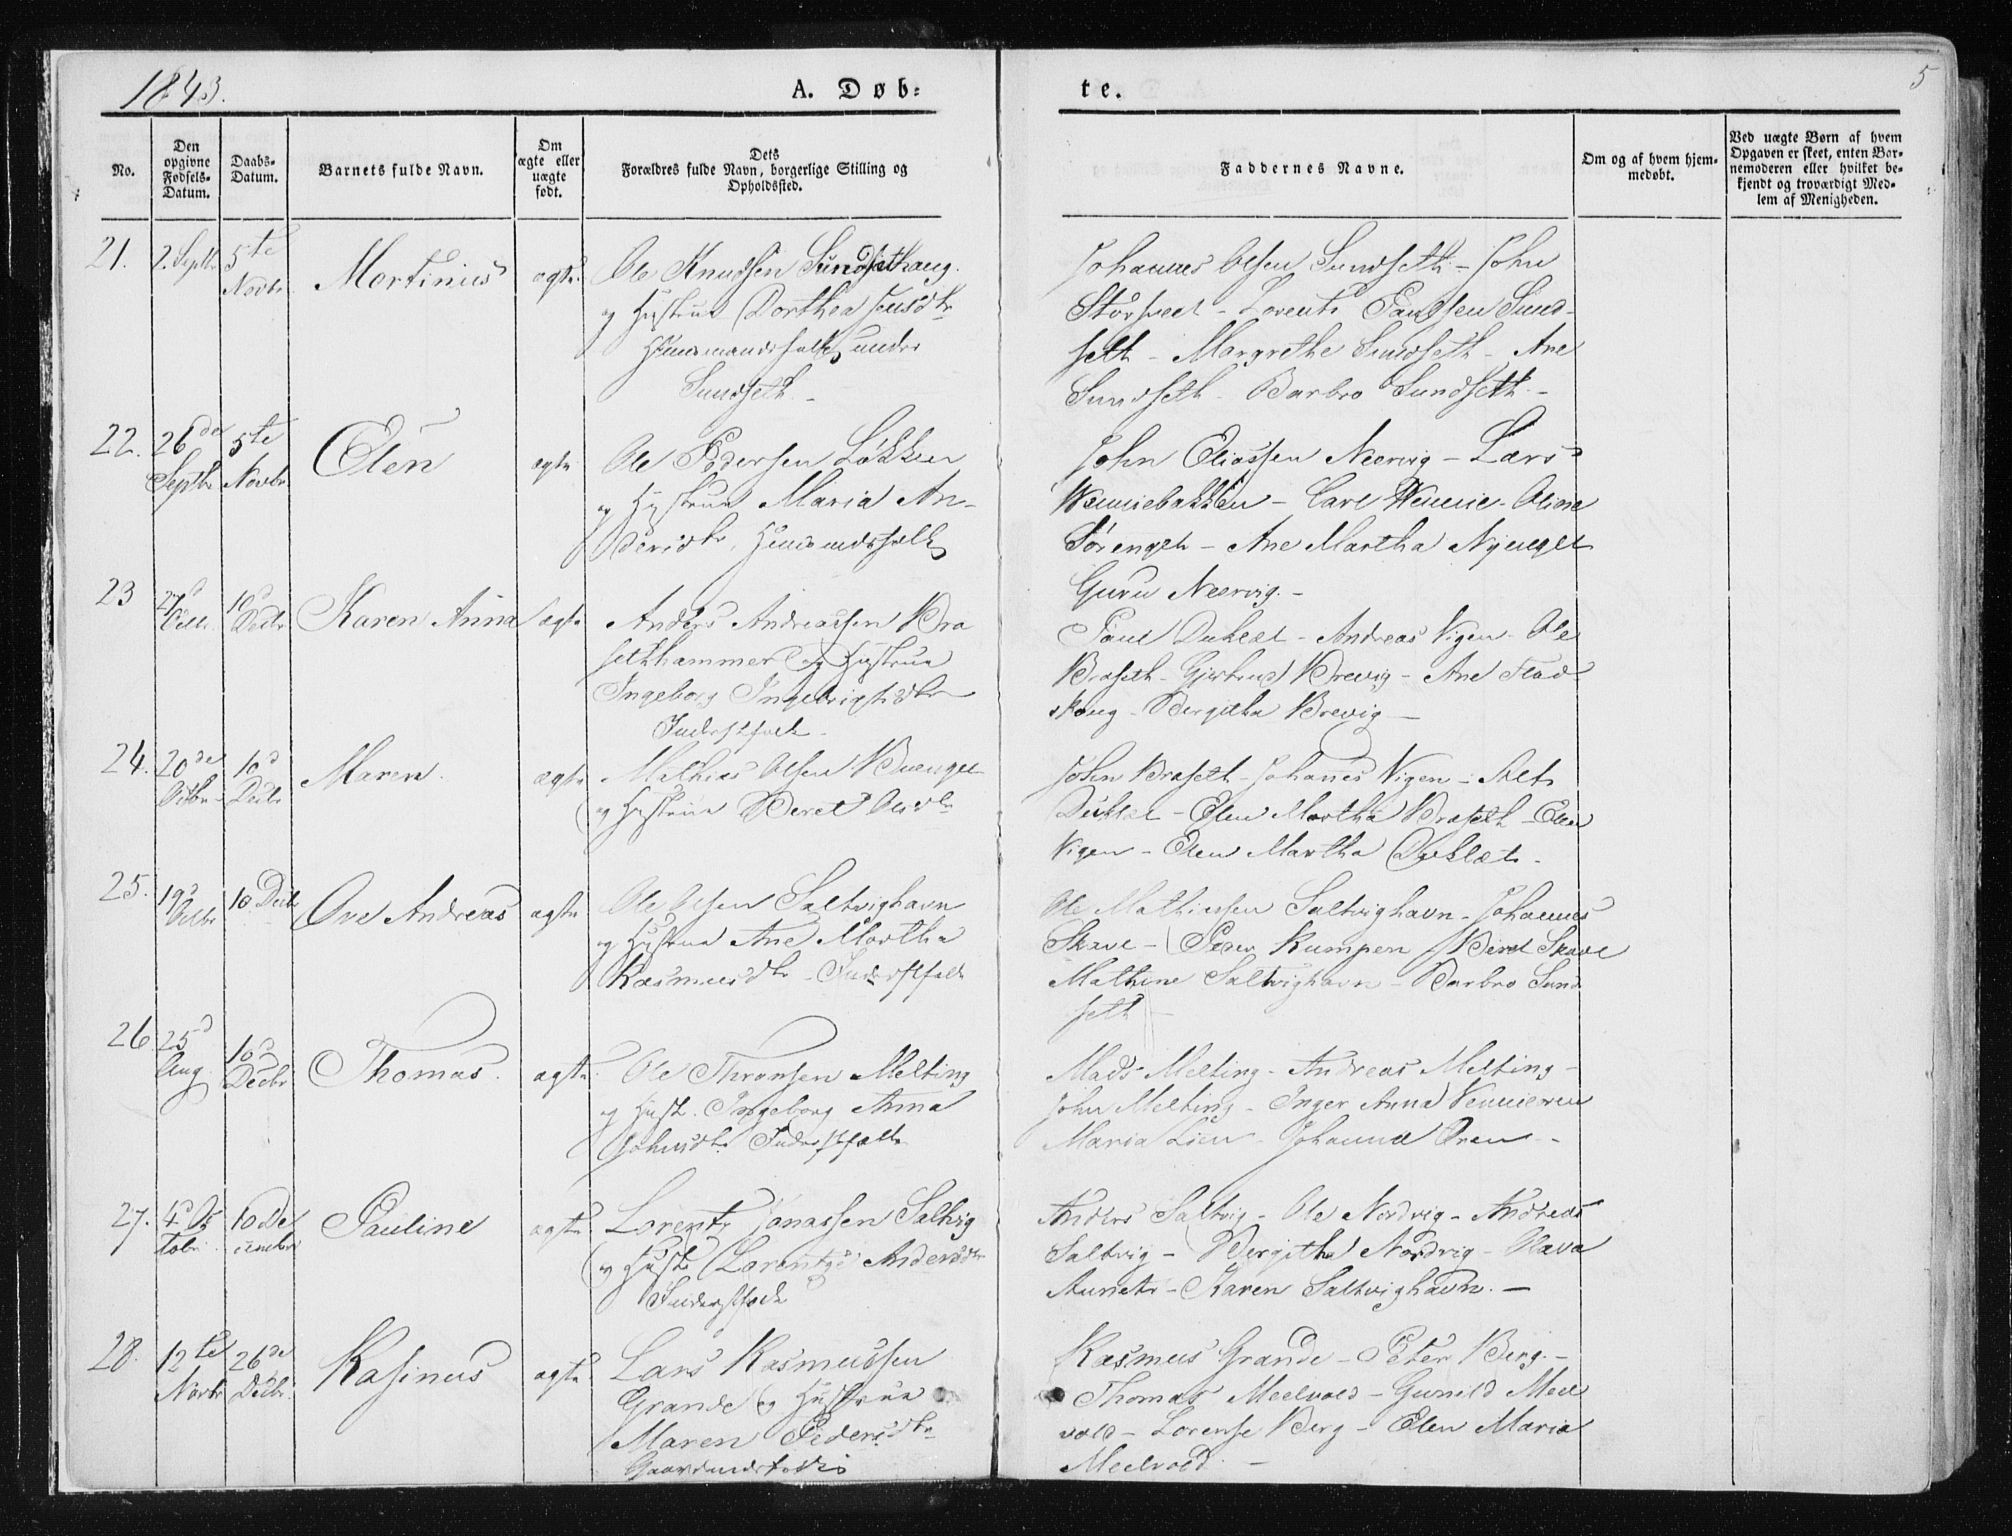 1843.
A. Døb=
te.
5
No.
Den
opgivne
Fødsels-
Datum.
Daabs-
Datum.
Barnets fulde Navn.
Om
ægte eller
uægte
født.
Dets
Forældres fulde Navn, borgerlige Stilling og
Opholdssted.
Faddernes Navne.
Om og af hvem hjem-
medøbt.
Ved uægte Børn af hvem
Opgaven er skeet, enten Bar-
nemoderen eller hvilket be-
kjendt og troværdigt Med-
lem af Menigheden.
21.
2. Septbr
5te
Novbr
Mortinius
ægte.
Ole Knudsen Sundsethaug.
og Hustrue Dorthea Jensdtr
Huusmandsfolk under
Sundseth. -
Johannes Olsen Sundseth - John
Lorents Paulsen Sund-
seth - Margrethe Sundseth - Ane
Sundseth - Barbro Sundseth -
22.
26de
Septbr
5te
Novbr
Elen
ægte
Ole Pedersen Løkken
og Hustrue Maria An-
dersdtr, Huusmandsfolk
John Eliassen Neervig - Lars
Wenniebakken - Carl Wennie - Oline
Sørenget - Ane Martha Nyenget
Guru Neervig. -
23
27d
Octbr.
10d
Decbr
Karen Anna
ægte
Anders Andreassen Bra
sethhammer og Hustrue
Ingeborg Ingebrigtsdtr
Inderstfolk -
Paul Duklæt - Andreas Vigen - Ole
Braseth - Gjertrud Brevig - Ane Flad
skoug - Bergitha Brevig -
24.
20de
Octbr
10d
Decbr
Maren.
ægte
Mathias Olsen Buenget
og Hustrue Beret Olsdtr
John Braseth - Johanes Vigen -
Duklæt - Elen Martha Braseth - Elen
Vigen - Elen Martha Duklæt -
25.
19d
Octbr
10 Decbr
Ove Andreas
ægte
Ole Olsen Saltvighavn
og Hustrue Ane Martha
Rasmusdtr - Inderstfolk
Ole Mathiassen Saltvighavn - Johannes
Skave - Peder Rumpen / Beret Skave
Mathine Saltvighavn - Barbro Sund
seth -
26.
25d
Aug
10d
Decbr
Thomas.
ægte.
Ole Thronsen Melting
og Hust. Ingeborg Anna
Johnsdtr. Inderstfolk
Mads Melting - Andreas Melting -
John Melting - Inger Anna
Maria Lien - Johanna Oren -
27.
4d Oc
tobr
10 De
cember
Pauline
ægte
Lorents Jonassen Saltvig
og Hust. Lorentze Andersdtr
Inderstfolk
Anders Saltvig - Ole Nordvig - Andreas
Saltvig - Bergitha Nordvig - Olava
Aunet - Karen Saltvighavn. -
28.
12te
Novbr
26de
Decbr
Rasinus
ægte
Lars Rasmussen
Grande og Hustrue
Maren Pedersdtr
Rasmus Grande - Peter Berg. -
Thomas Meelvold - Gunild Meel
vold - Lorense Berg - Elen Maria
Meelvold. -